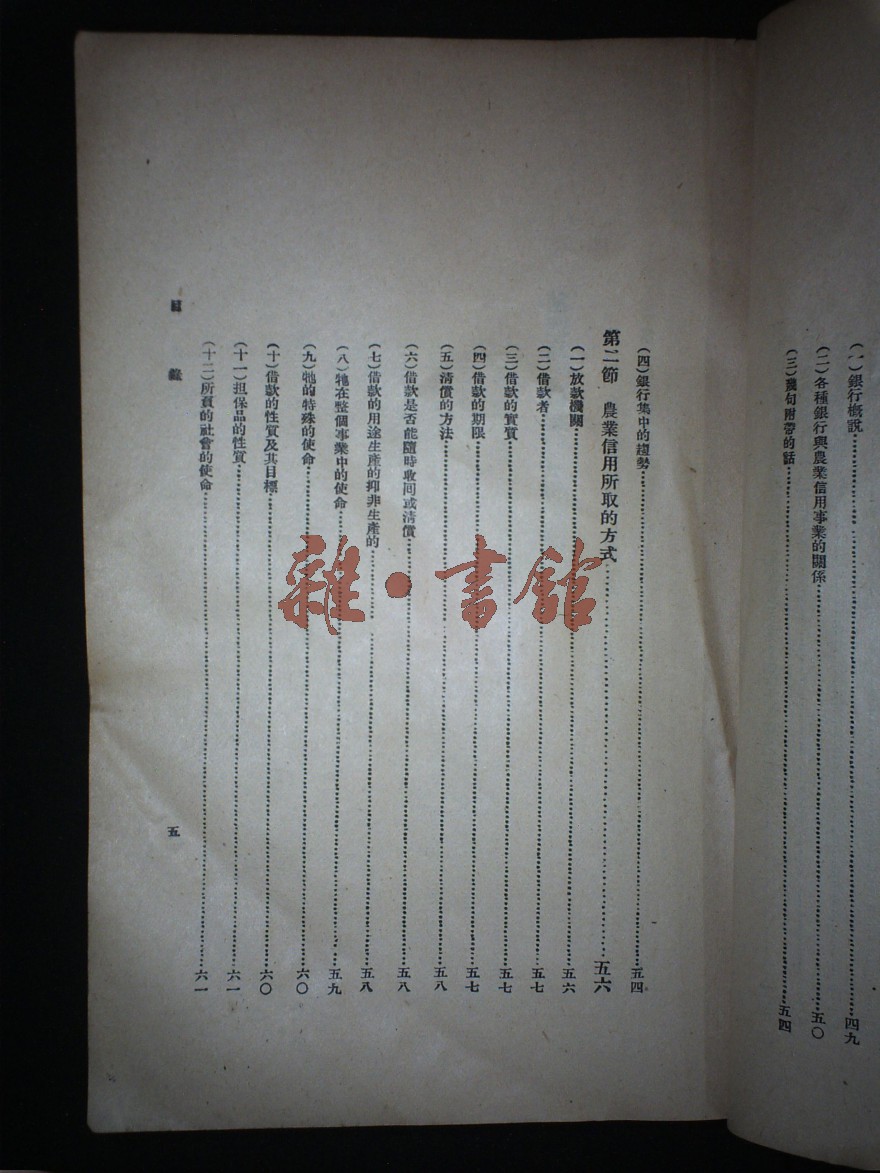 （一）銀行概說…………四九
（二）各種銀行與農業信用事業的關係…………五〇
（三）幾句附帶的話…………五四
（四）銀行集中的趨勢…………五四
第二節　農業信用所取的方式…………五六
（一）放款機關…………五六
（二）借款者…………五七
（三）借款的實質…………五七
（四）借款的期限…………五七
（五）清償的方法…………五八
（六）借款是否能隨時收回或清償…………五八
（七）借款的用途生產的抑非生產的…………五八
（八）牠在整個事業中的使命…………五九
（九）牠的特殊的使命…………六〇
（十）借款的性質及其目標…………六〇
（十一）担保品的性質…………六一
（十二）所負的社會的使命…………六一
目錄
五
雜·書館